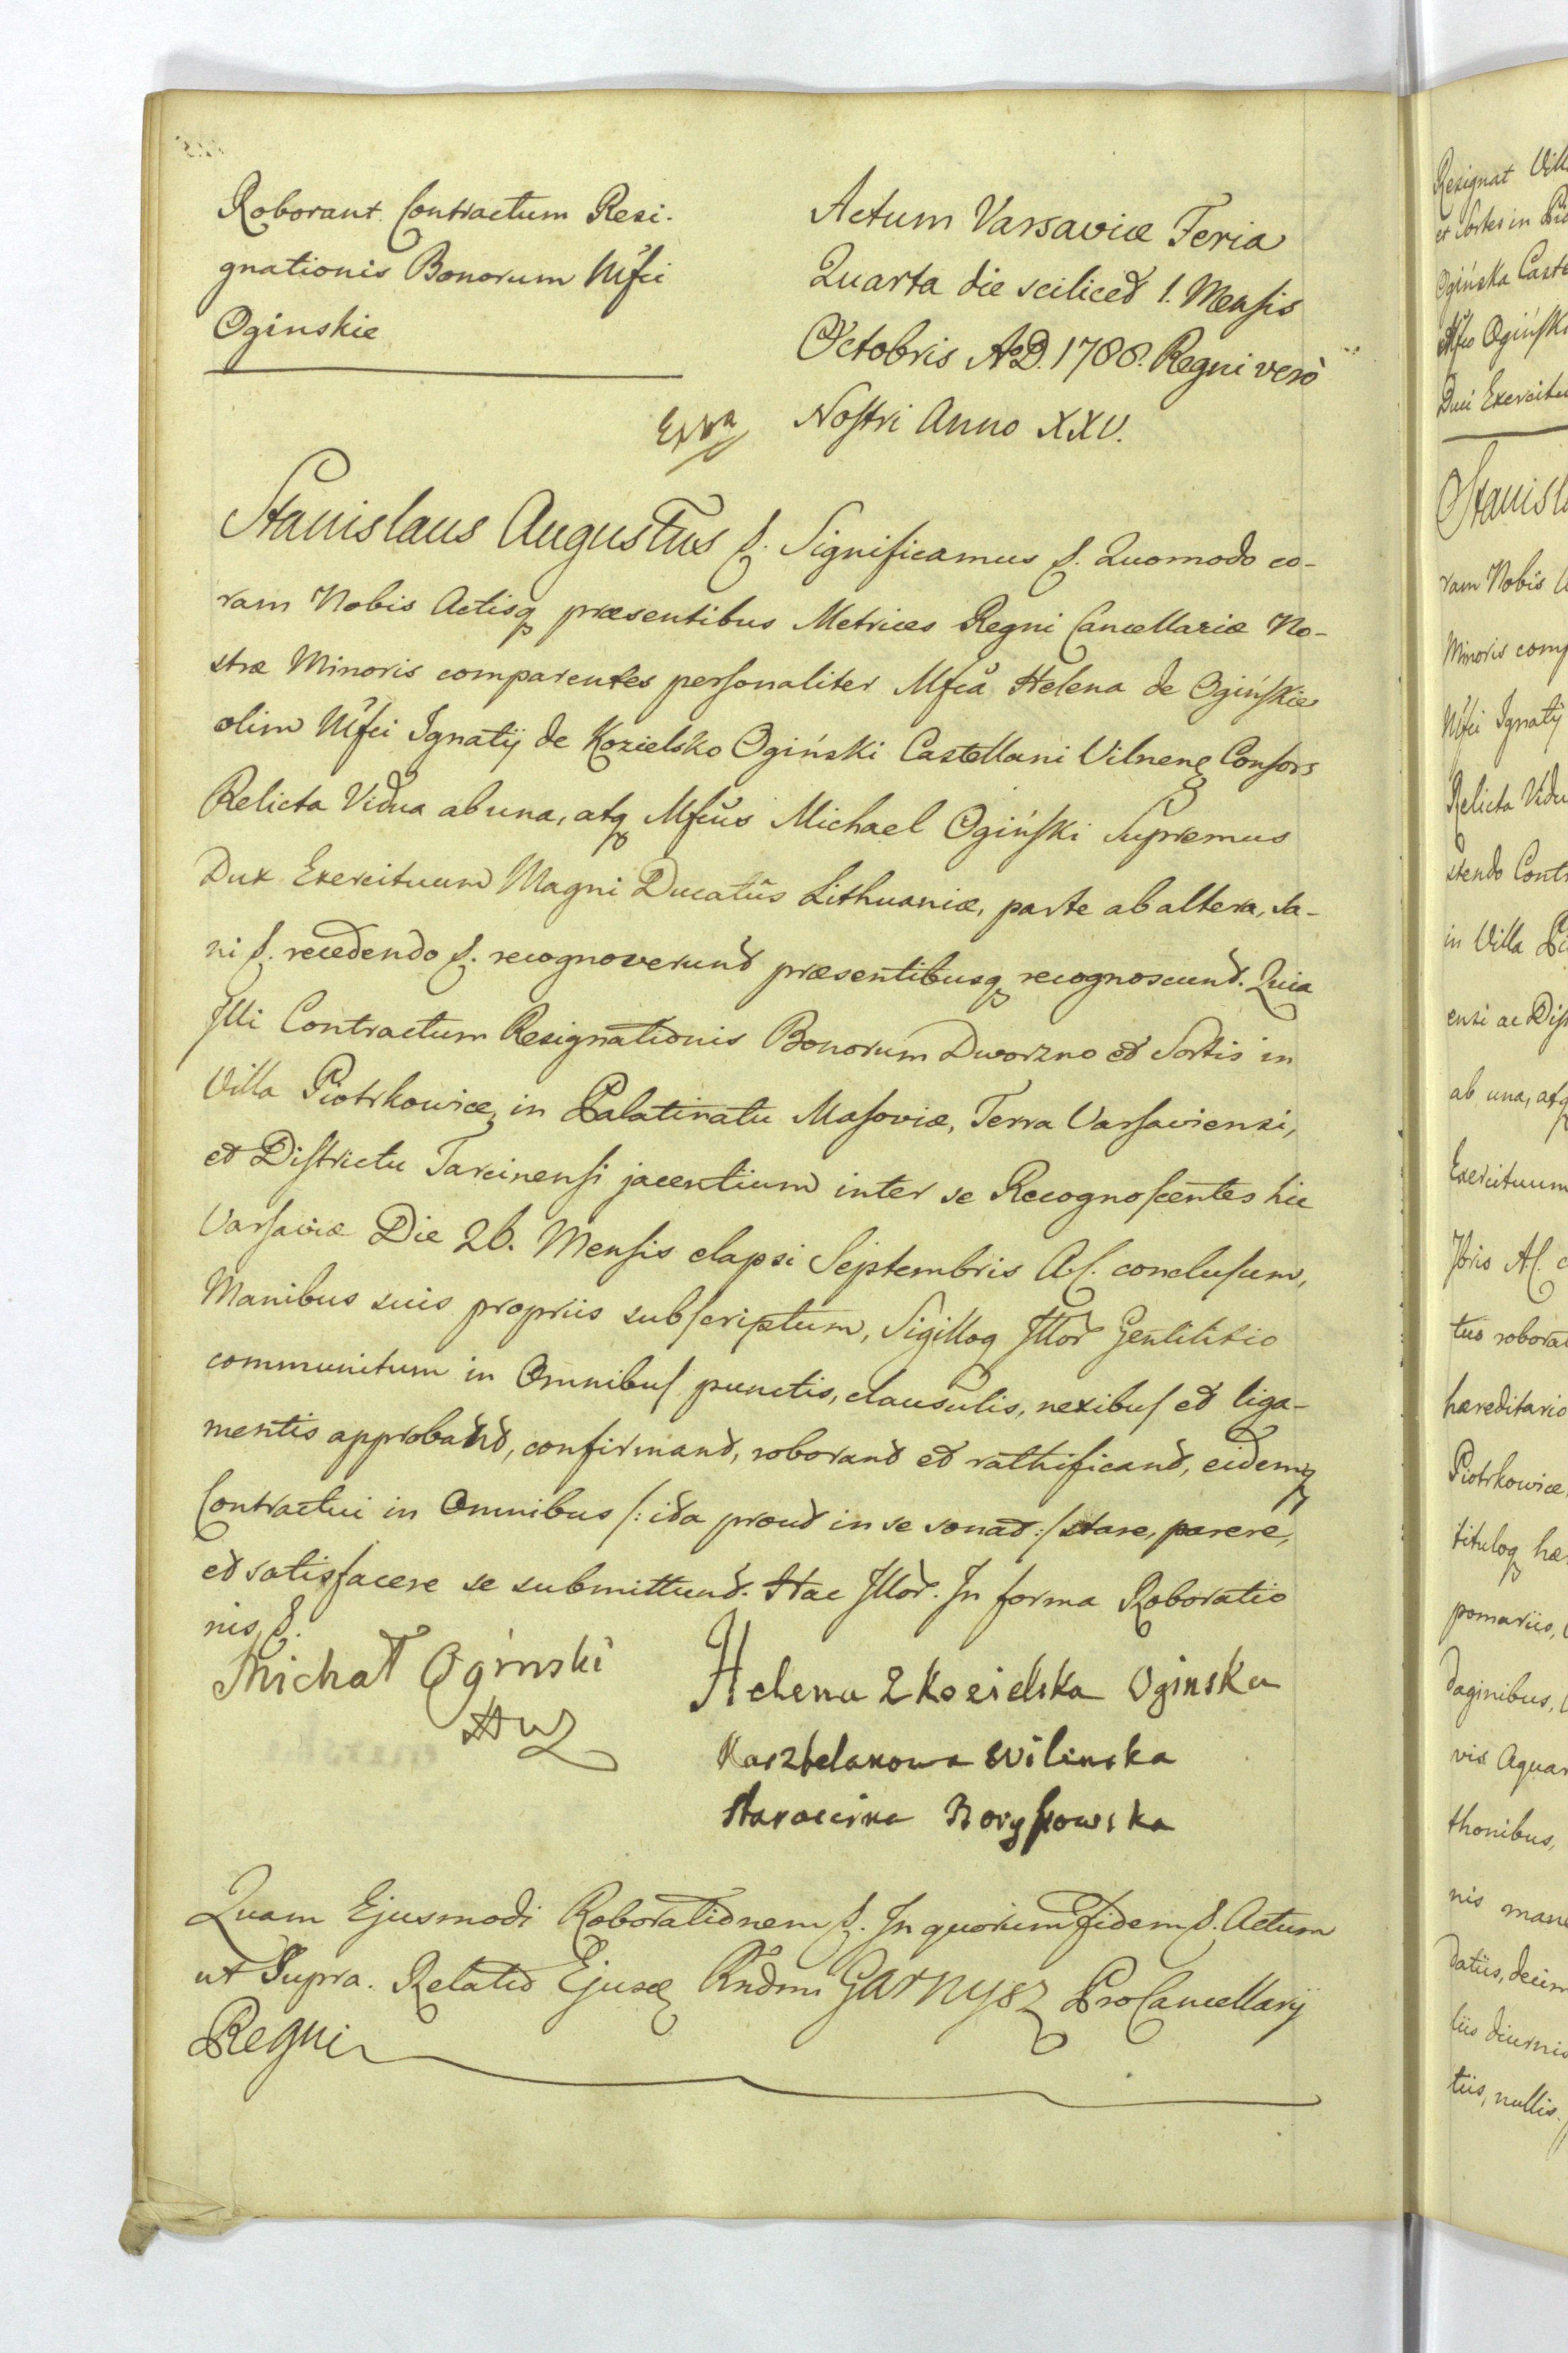 Roborant Contractum Resi-
gnationis Bonorum Mfci
Oginskie
Actum Varsaviæ Feria
Quarta die scilicet 1. Mensis
Octobris A.D. 1788. Regni verò
Nostri Anno XXV.
Extra
Stanislaus Augustus &. Significamus &. Quomodo co-
ram Nobis Actisq præsentibus Metrices Regni Cancellariæ No-
stræ Minoris comparentes personaliter Mfca Helena de Ogińskie
olim Mfci Ignatij de Kozielsko Ogiński Castellani Vilnens Consors
Relicta Vidua ab una, atq Mfcus Michael Ogiński Supremus
Dux Exercituum Magni Ducatûs Lithuaniæ, parte ab altera, sa-
ni &. recedendo &. recognoverunt præsentibusq recognoscunt. Quia
Illi Contractum Resignationis Bonorum Dworzno et Sortis in
Villa Piotrkowice, in Palatinatu Masoviæ, Terra Varsaviensi,
et Districtu Tarcinensi jacentium inter se Recognoscentes hic
Varsaviæ Die 26. Mensis elapsi Septembris A.C. conclusum,
Manibus suis propriis subscriptum, Sigilloq Illor Gentilitio
communitum in Omnibus punctis, clausulis, nexibus et liga-
mentis approbant, confirmant, roborant et rathificant, eidemq
Contractui in Omnibus /: ita prout in se sonat :/ stare, parere,
et satisfacere se submittunt. Hac Illor. In forma Roboratio
nis &.
Michał Ogínski
HWL
Helena z Kozielska Oginska
Kasztelanowa Wilinska
Staroscina Borysowska
Quam Ejusmodi Roborationem &. In quorum fidem &. Actum
ut Supra. Relatio Ejusd Rndmi Garnysz ProCancellarij
Regni
Resignat Vill
et Sortes in
Ogińska Caste
Mfco Ogińsk
Duci Exercitu
Stanisl
ram Nobis
Minoris comp
Mfci Ignatij
Relicta Vidu
stendo Contr
in Villa
ensi ac Dis
ab una, atq
Exercituum
tus robora
hæreditario
Piotrkowice,
tituloq hæ
pomariis,
vis Aquar
thonibus,
nis mane
datiis, decim
liis diurnis
tiis, nullis.